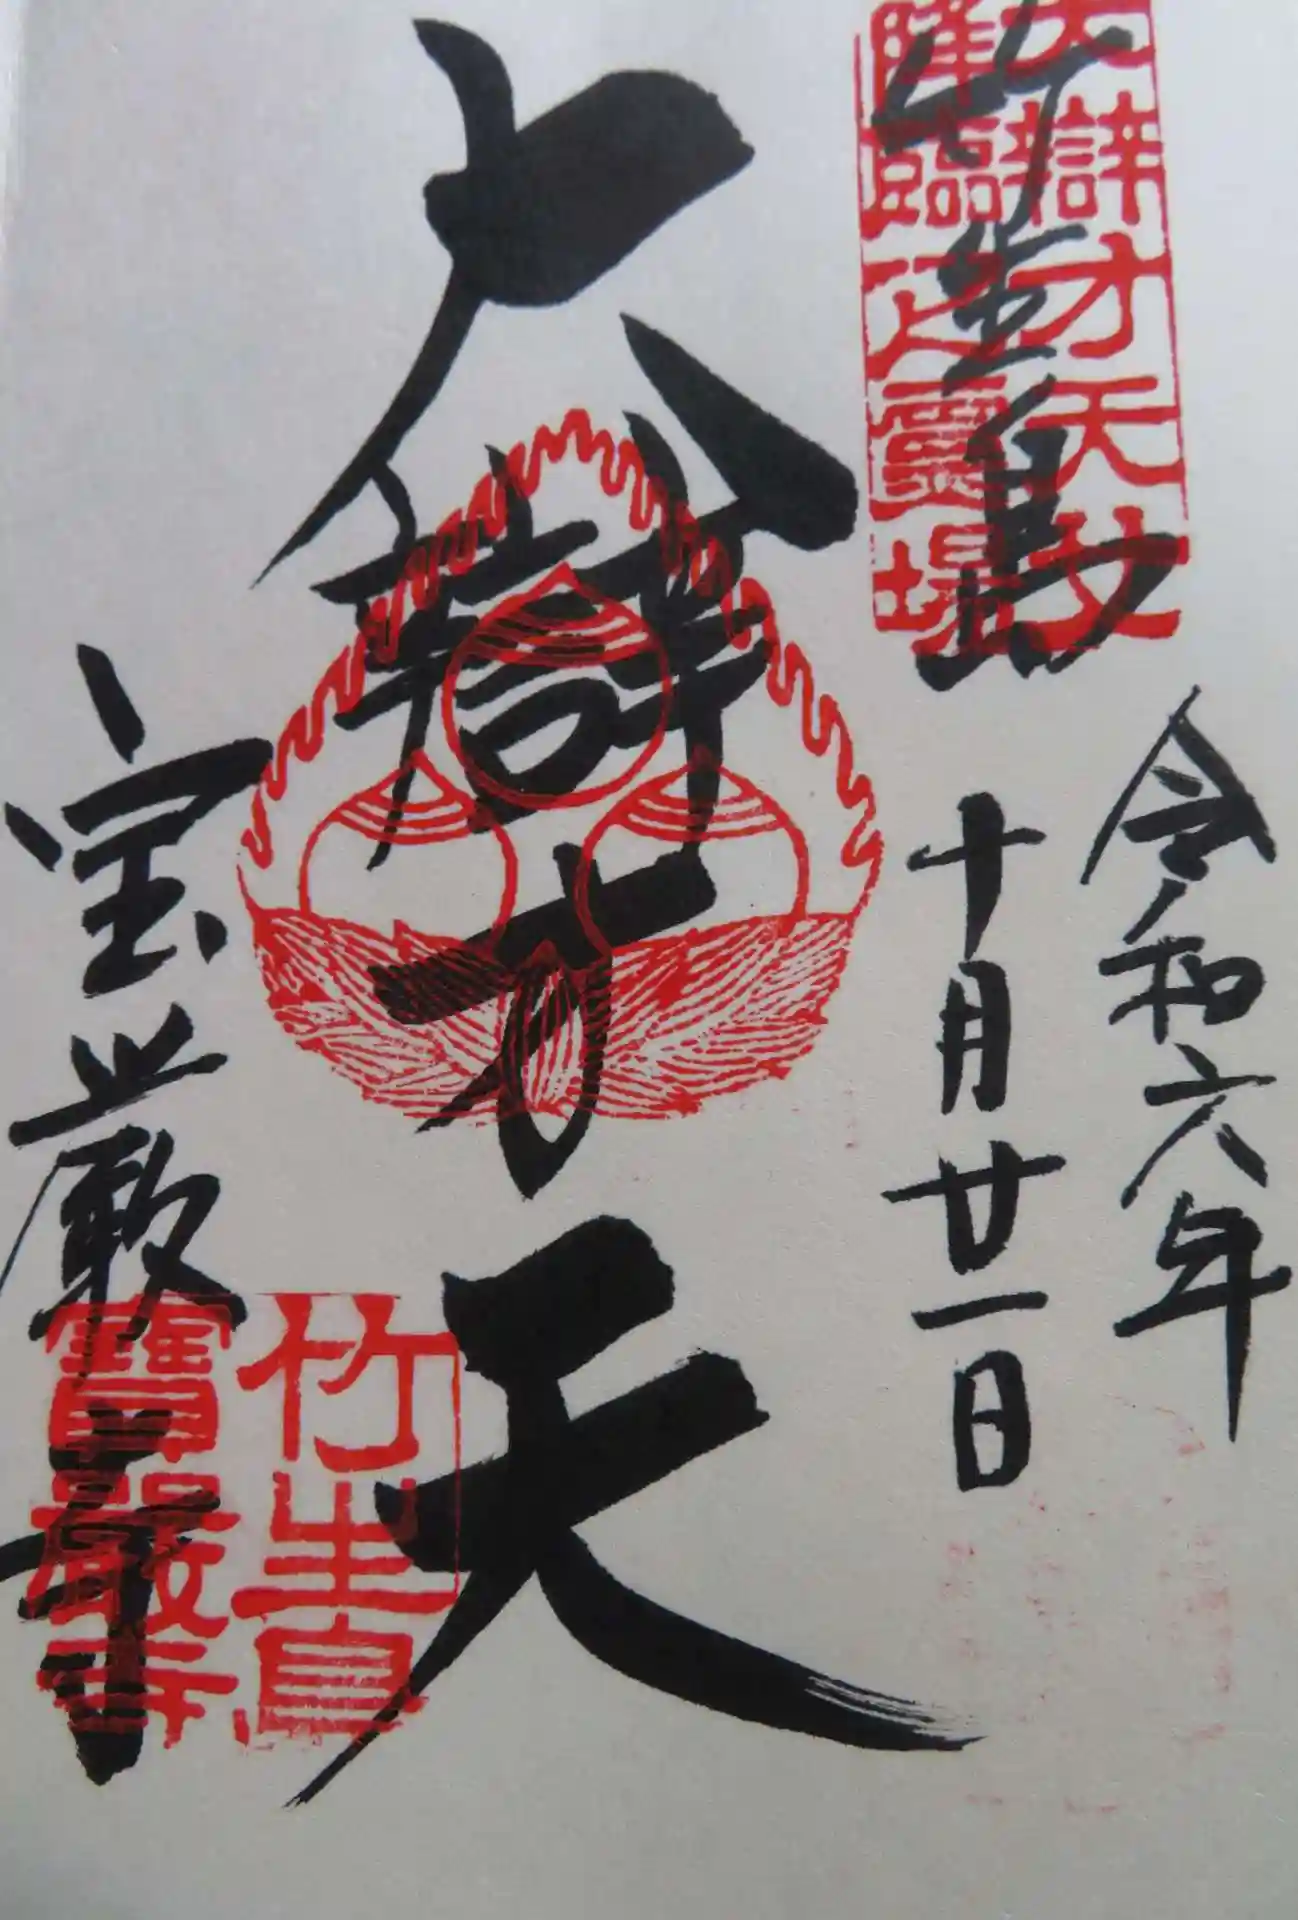 大辯才天女
降臨之靈場
竹生島
令和六年
十月廿一日
大辯才天
宝厳寺
竹生島
寶嚴寺